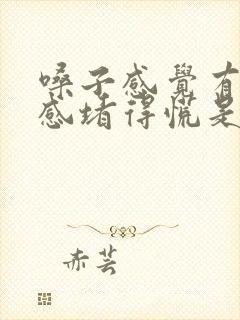 嗓子感覺有
感堵得慌是
赤芸